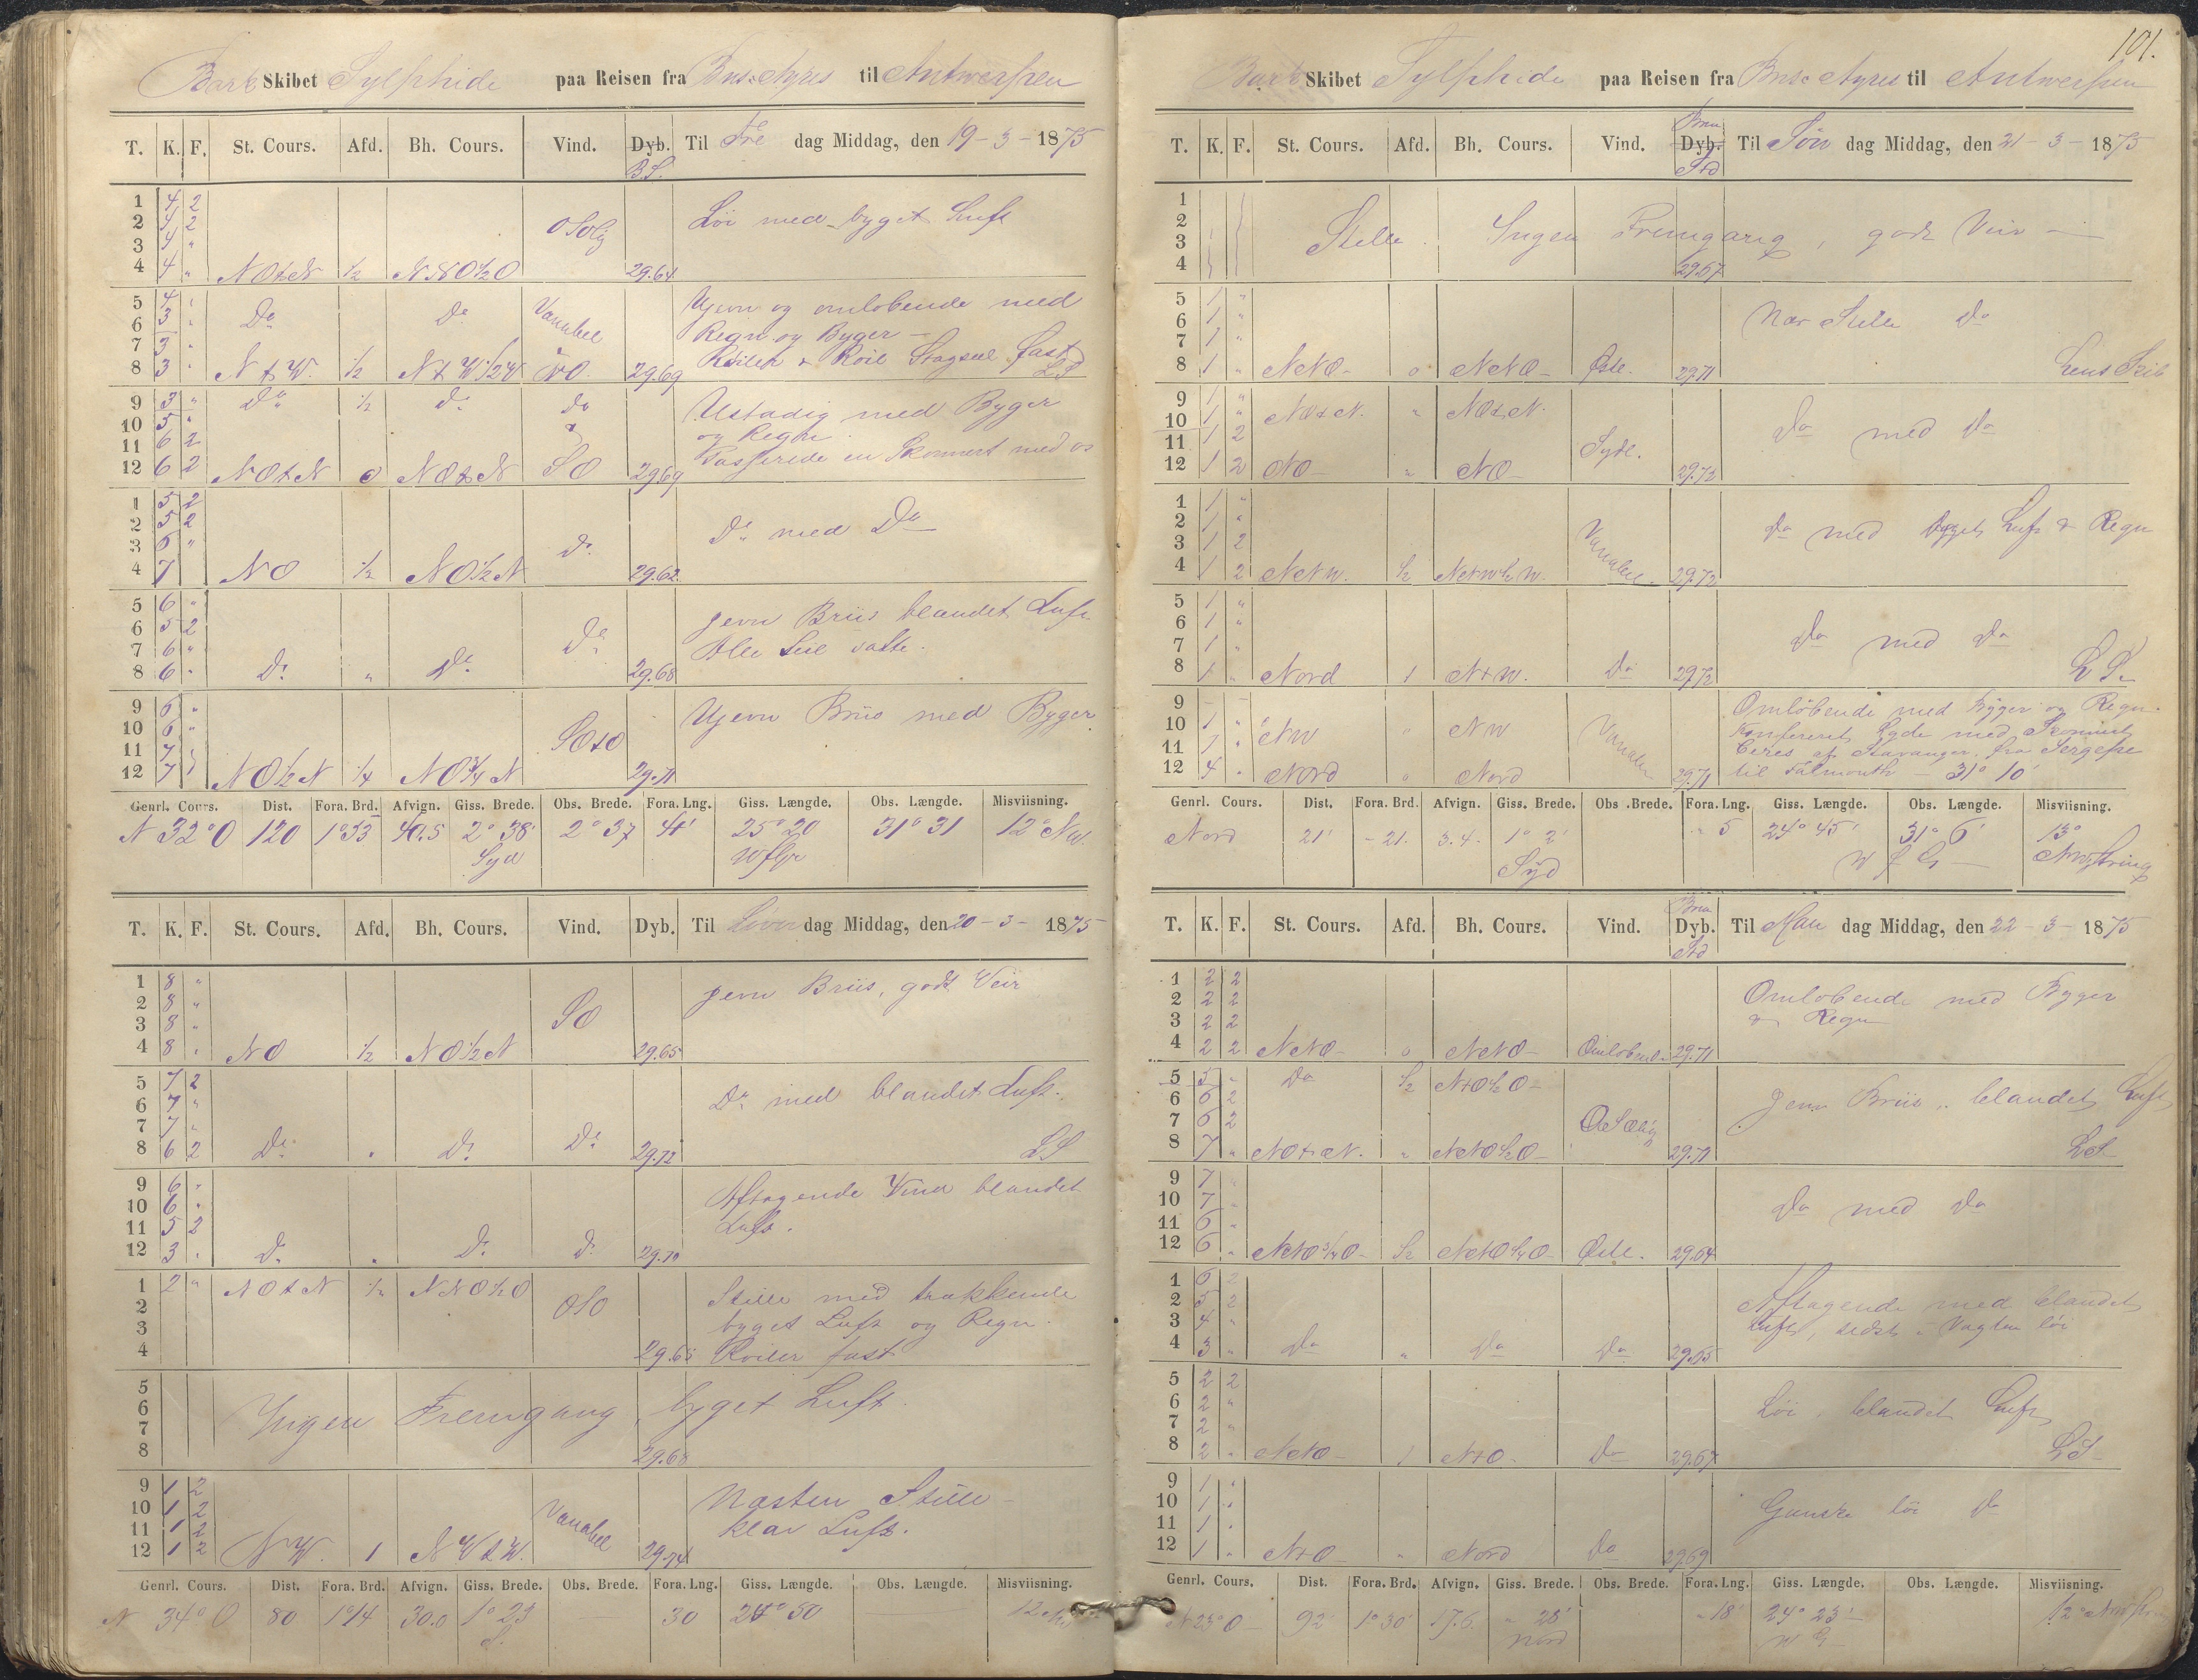 Bark Skibet Sylphide paa Reisen fra Bns. Ayres til Antwerpen
T. K. F. St. Cours. Afd. Bh. Cours. Vind. Dyb. Til Fre dag Middag, den 19-3-1875
B.S.
1 4 2
2 4 2 OSOlig Löi med byget Luft
3 4 "
4 4 " NOtN ½ NNO½O 29.64
5 4 Ujevn og omlobende med
6 3 Do Do Variabel Regn og Byger
7 3
8 3 NtW. ½ NtW½W NO. 29.69 Roiler & Roil Stagseil fast LS
9 3 " Do ½ Do Do Ustadig med Byger
10 5 og Regn
11 6 2
12 6 2 NOtN 0 NOtN SO 29.69 Passerede en Skonnert med os
1 5 2
2 5 2 Do med Do
3 6 "
4 7 NO ½ NO½N Do 29.62
5 6 " jevn Briis blandet Luft
6 5 2 Do Alle Seil satte.
7 6 "
8 6 " Do " Do 29.68
9 6 " Ujevn Briis med Byger
10 6 "
11 7 SOtO
12 7 NO½N ¼ NO¼N 29.71
Genrl. Cours. Dist. Fora. Brd. Afvign. Giss. Brede. Obs. Brede. Fora. Lng. Giss. Længde. Obs. Længde. Misviisning.
N 32° O 120 1°53 40.5 2° 38' 2° 37 41' 25° 20 31° 31 12° NW.
Syd W f Gr
T. K. F. St. Cours. Afd. Bh. Cours. Vind. Dyb. Til Löver dag Middag, den 20-3-1875
1 8 " jevn Briis, godt Veir
2 8 "
3 8 " SO
4 8 " NO ½ NO½N 29.65
5 7 2
6 7 " Do med blandet Luft.
7 7 "
8 6 2 Do " Do Do 29.72 LS
9 6 " Aftagende Vind blandet
10 6 " Luft.
11 5 2
12 3 " Do " Do Do 29.70
1 2 " NOtN ½ NNO½O Stille med trækkende
2 OSO byget Luft og Regn.
3
4 29.65 Roiler fast
5
6 Ingen Fremgang, byget Luft.
7
8 29.68
9 1 2 Næsten Stille
10 1 2 Variabel klar Luft.
11 1 2
12 1 2 NW. 1 NWtW. 29.74
Genrl. Cours. Dist. Fora. Brd. Afvign. Giss. Brede. Obs. Brede. Fora. Lng. Giss. Længde. Obs. Længde. Misviisning.
N 34° O 80 1°14 30.0 1° 23 30 24° 50 12
S.
101.
Bark Skibet Sylphide paa Reisen fra Bns. Ayres til Antwerpen
T. K. F. St. Cours. Afd. Bh. Cours. Vind. Dyb. Til Sön dag Middag, den 21-3-1875
Std
1
2 Stille. Ingen Fremgang, godt Veir
3
4 29.67
5 1 " Nær Stille Do
6 1 "
7 1 "
8 1 " NtO 0 NtO Östl. 29.71 Lens Skib
9 1 "
10 1 " NOtN. " NOtN.
11 1 2 Sydl. Do med Do
12 1 2 NO " NO 29.72
1 1 "
2 1 " Variabel Do med byget Luft & Regn
3 1 2
4 1 2 NtW. ½ NtW½W. 29.72
5 1 "
6 1 "
7 1 " Do med Do
8 1 " Nord 1 NtW. Do 29.72 LS
9 - - Omlöbende med Byger og Regn.
10 1 " NW " NW Variabel Konfereret Lgde med Skonnert
11 1 " Ceres af Stavanger, fra
12 4 " Nord 0 Nord 29.71 til Falmouth 31° 10'
Genrl. Cours. Dist. Fora. Brd. Afvign. Giss. Brede. Obs. Brede. Fora. Lng. Giss. Længde. Obs. Længde. Misviisning.
Nord 21' - 21. 3.4. 1° 2' " 5 24° 45' 31° 6' 13°
Syd W f G
T. K. F. St. Cours. Afd. Bh. Cours. Vind. Dyb. Til Man dag Middag, den 22-3-1875
Std
1 2 2 Omlöbende med Byger
2 2 2 & Regn
3 2 2
4 2 2 NtO 0 NtO Omlöbende 29.71
5 5 " Do ½ NtO½O
6 6 2 Jevn Briis, blandet Luft
7 6 2 OSOlig
8 7 " NOtN. " NNO½O 29.71 LS
9 7 "
10 7 " Do med Do
11 6 "
12 6 " NtO¾O ½ NtO¼O Östl. 29.64
1 6 2
2 5 2 Aftagende med blandet
3 4 " Luft, sidst i Vagten löi
4 3 " Do " Do Do 29.65
5 2 2
6 2 " Löi, blandet Luft
7 2 "
8 2 " NtO 1 NtO. Do 29.67 LS
9 1 "
10 1 " Ganske löi Do
11 1 "
12 1 " NtO " Nord Do 29.69
Genrl. Cours. Dist. Fora. Brd. Afvign. Giss. Brede. Obs. Brede. Fora. Lng. Giss. Længde. Obs. Længde. Misviisning.
N 23° O 92' 1° 30' 17.6. " 28' " 18' 24° 23' 12°
Nord W G